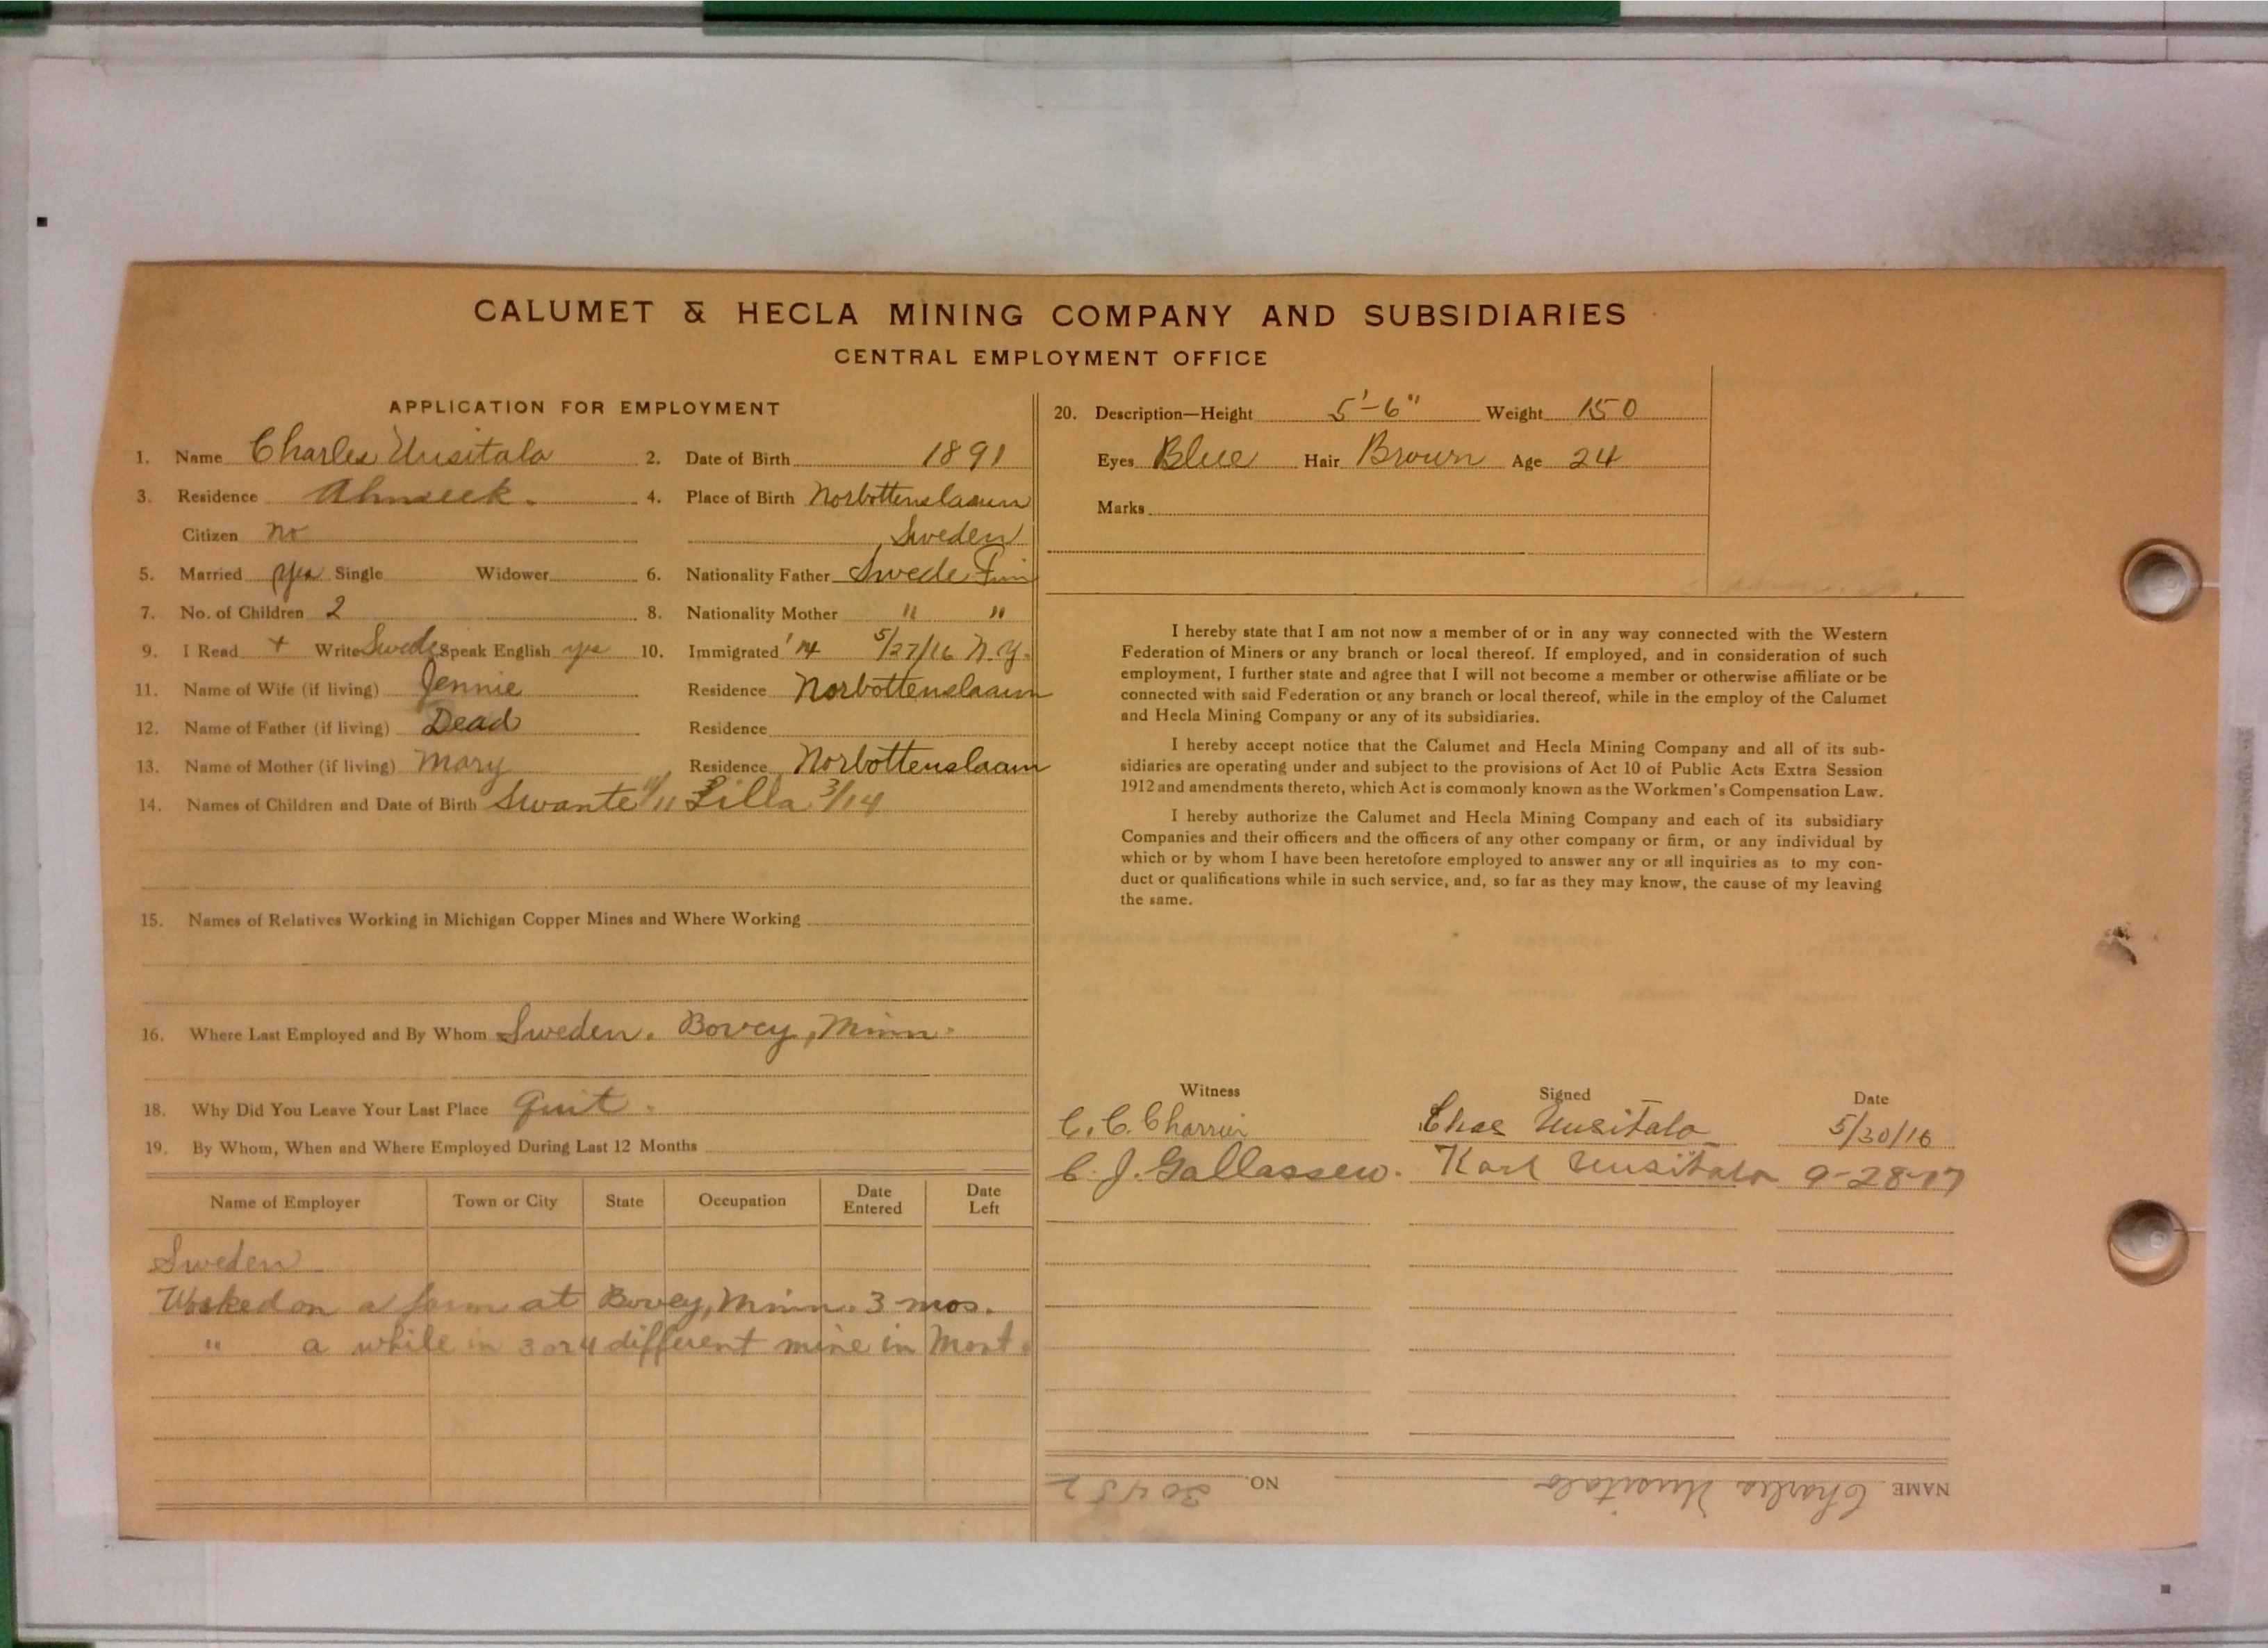 CALUMET & HECLA MINING COMPANY AND SUBSIDIARIES
CENTRAL EMPLOYMENT OFFICE
APPLICATION FOR EMPLOYMENT
1. Name Charles Uusitalo 2. Date of Birth 1891
3. Residence Ahmeek. 4. Place of Birth Norbottenslaaun
Citizen no Sweden
5. Married yes Single Widower 6. Nationality Father Swede Finn
7. No. of Children 2 8. Nationality Mother " "
9. I Read + Write Swede Speak English yes 10. Immigrated '14 5/27/16 N.Y.
11. Name of Wife (if living) Jennie Residence Norbottenslaaun
12. Name of Father (if living) Dead Residence
13. Name of Mother (if living) Mary Residence Norbottenslaaun
14. Names of Children and Date of Birth Swante 11/11 Lilla 3/14
15. Names of Relatives Working in Michigan Copper Mines and Where Working
16. Where Last Employed and By Whom Sweden. Bovey, Minn.
18. Why Did You Leave Your Last Place Quit.
19. By Whom, When and Where Employed During Last 12 Months
Name of Employer Town or City State Occupation Date Entered Date Left
Sweden
Worked on a farm at Bovey, Minn. 3 mos.
" a while in 3 or 4 different mine in Mont.
20. Description—Height 5'-6" Weight 150
Eyes Blue Hair Brown Age 24
Marks
I hereby state that I am not now a member of or in any way connected with the Western
Federation of Miners or any branch or local thereof. If employed, and in consideration of such
employment, I further state and agree that I will not become a member or otherwise affiliate or be
connected with said Federation or any branch or local thereof, while in the employ of the Calumet
and Hecla Mining Company or any of its subsidiaries.
I hereby accept notice that the Calumet and Hecla Mining Company and all of its sub-
sidiaries are operating under and subject to the provisions of Act 10 of Public Acts Extra Session
1912 and amendments thereto, which Act is commonly known as the Workmen's Compensation Law.
I hereby authorize the Calumet and Hecla Mining Company and each of its subsidiary
Companies and their officers and the officers of any other company or firm, or any individual by
which or by whom I have been heretofore employed to answer any or all inquiries as to my con-
duct or qualifications while in such service, and, so far as they may know, the cause of my leaving
the same.
Witness Signed Date
C. C. Charrier Chas Uusitalo 5/30/16
C. J. Gallassew. Karl Uusitalo 9-28-17
NAME Charles Uusitalo NO. 30452